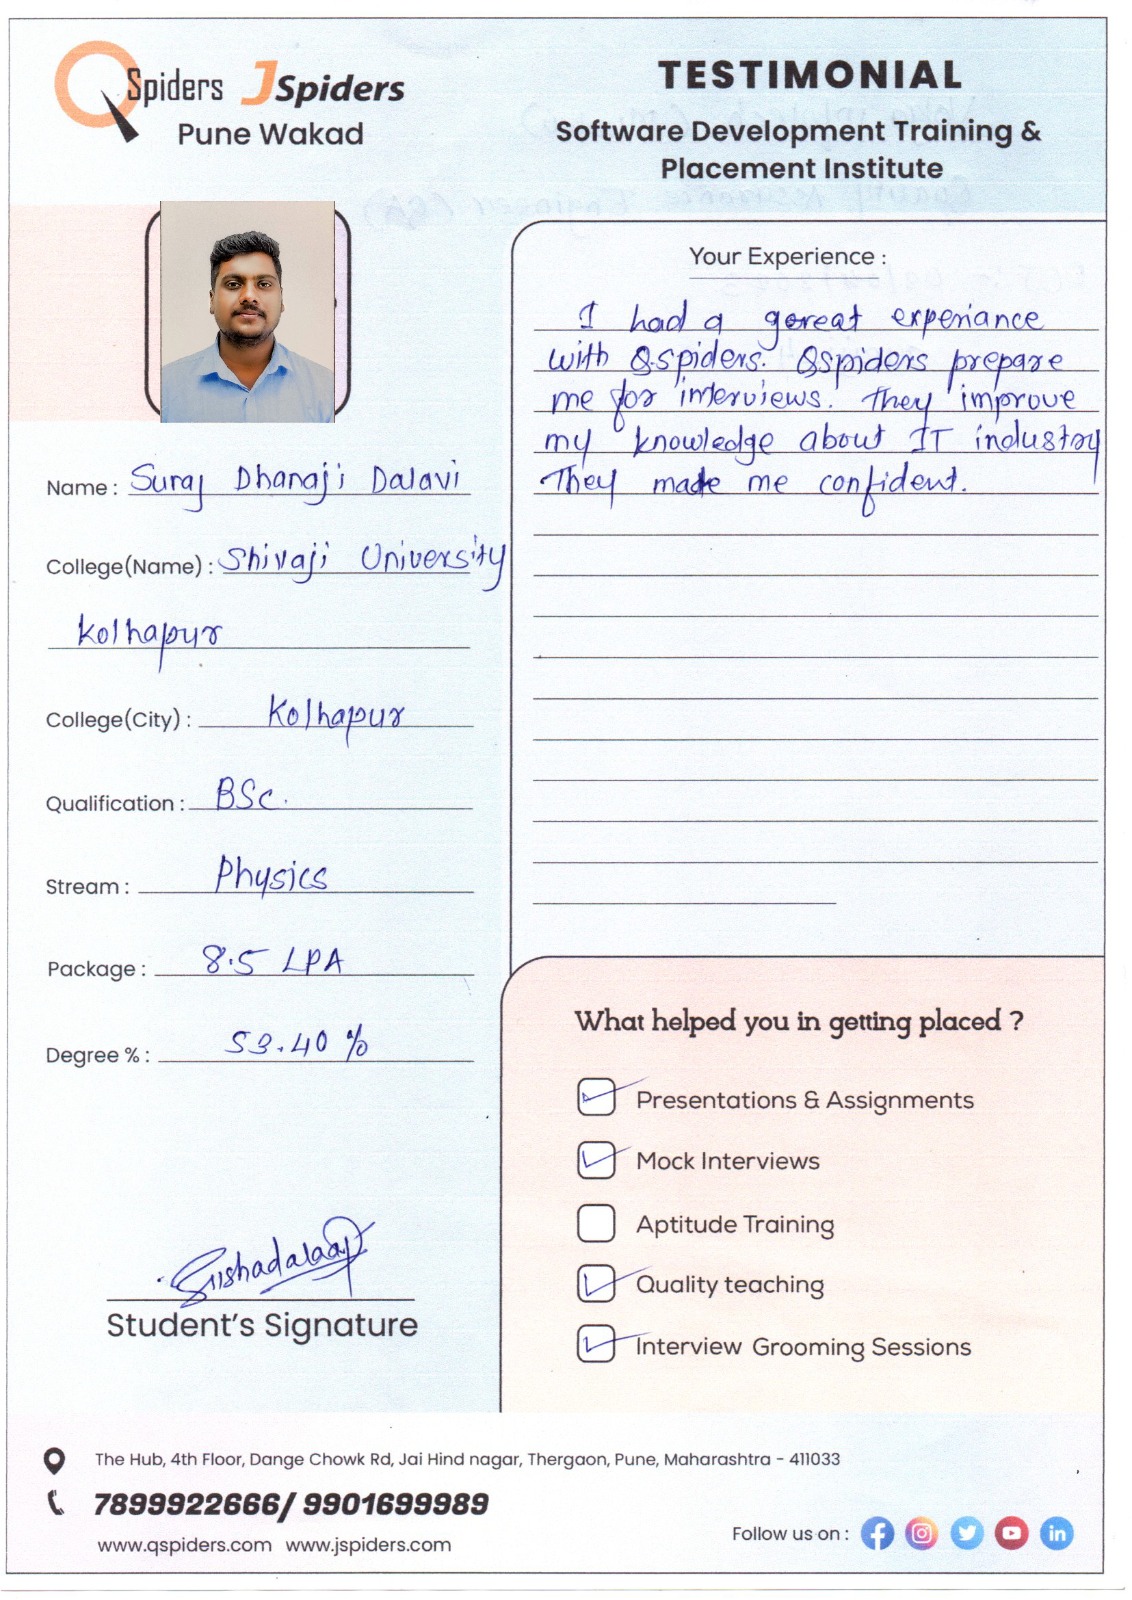 QSpiders JSpiders
Pune Wakad
TESTIMONIAL
Software Development Training &
Placement Institute
Name : Suraj Dhanaji Dalavi
College(Name) : Shivaji University
Kolhapur
College(City) : Kolhapur
Qualification : BSc.
Stream : Physics
Package : 8.5 LPA
Degree % : 53.40 %
Student's Signature
Your Experience :
I had a goreat experiance
with Q.spiders. Qspiders prepare
me for interviews. They improve
my knowledge about IT industry
They made me confident.
What helped you in getting placed ?
Presentations & Assignments
Mock Interviews
Aptitude Training
Quality teaching
Interview Grooming Sessions
The Hub, 4th Floor, Dange Chowk Rd, Jai Hind nagar, Thergaon, Pune, Maharashtra - 411033
7899922666/ 9901699989
www.qspiders.com www.jspiders.com
Follow us on :